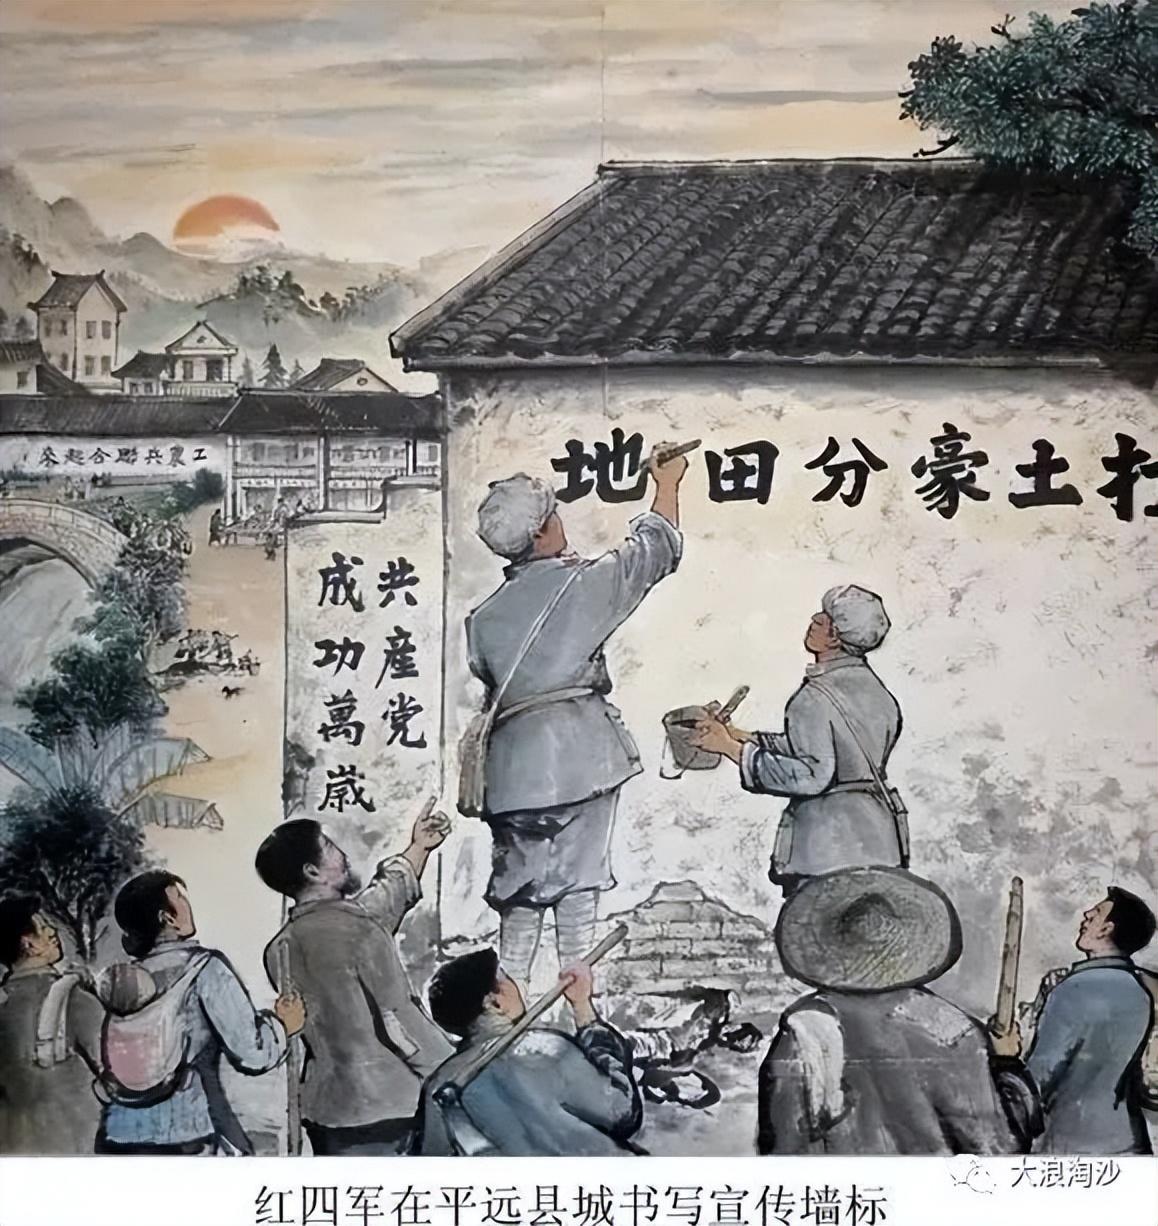 打土豪分田地
工農兵聯合起來
共産党
成功萬歲
大浪淘沙
红四军在平远县城书写宣传墙标